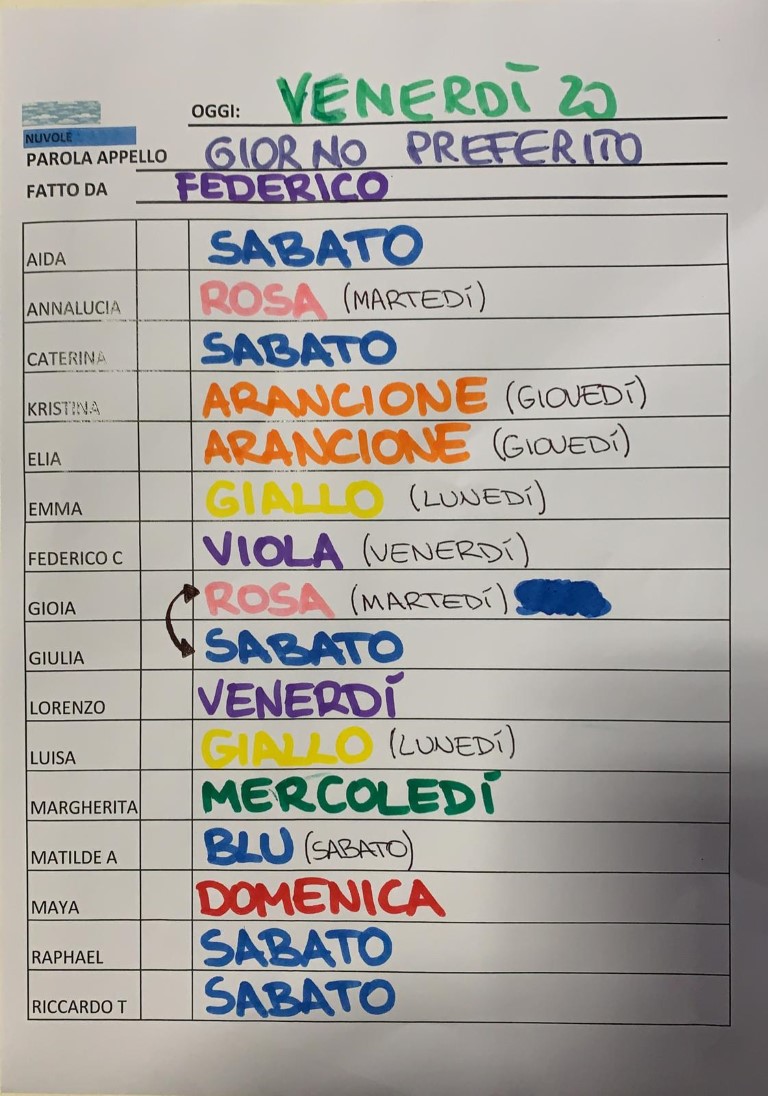 OGGI: VENERDÌ 20
NUVOLE
PAROLA APPELLO GIORNO PREFERITO
FATTO DA FEDERICO
AIDA SABATO
ANNALUCIA ROSA (MARTEDÌ)
CATERINA SABATO
KRISTINA ARANCIONE (GIOVEDÌ)
ELIA ARANCIONE (GIOVEDÌ)
EMMA GIALLO (LUNEDÌ)
FEDERICO C VIOLA (VENERDÌ)
GIOIA ROSA (MARTEDÌ)
GIULIA SABATO
LORENZO VENERDÌ
LUISA GIALLO (LUNEDÌ)
MARGHERITA MERCOLEDÌ
MATILDE A BLU (SABATO)
MAYA DOMENICA
RAPHAEL SABATO
RICCARDO T SABATO